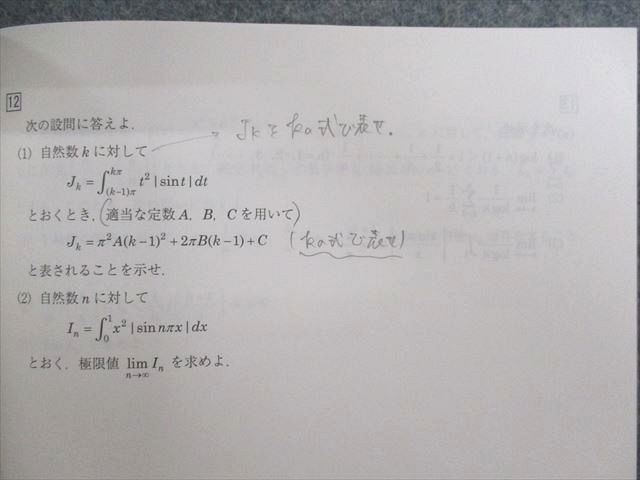 12
次の設問に答えよ.
Jkをkの式で表せ.
(1) 自然数 k に対して
J_k = ∫_{(k-1)π}^{kπ} t² | sin t | dt
とおくとき, (適当な定数 A, B, C を用いて)
J_k = π²A(k-1)² + 2πB(k-1) + C (kの式で表せ)
と表されることを示せ.
(2) 自然数 n に対して
I_n = ∫_0^1 x² | sin nπx | dx
とおく. 極限値 lim_{n→∞} I_n を求めよ.